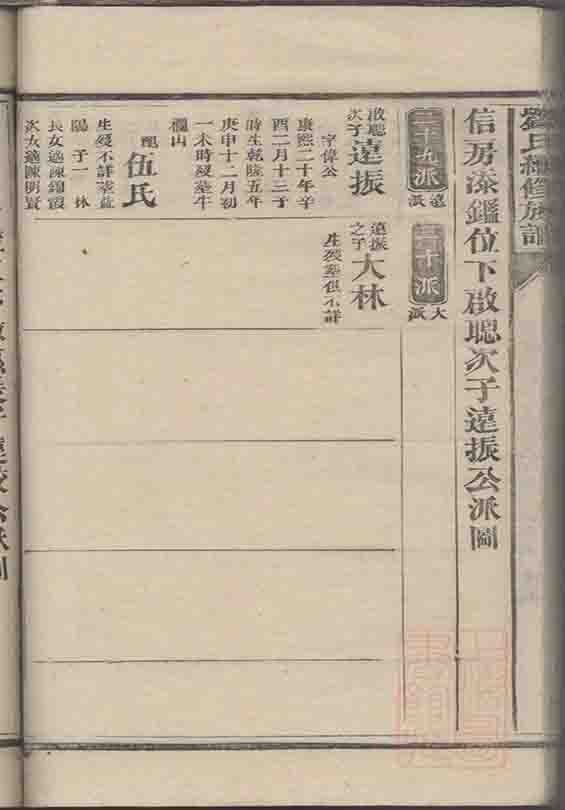 劉氏續修族譜
信房添鑑位下啟聰次子遠振公派圖
二十九派
遠派
三十派
大派
啟聰
次子
遠振
字偉公
康熙二十年辛
酉二月十三子
時生乾隆五年
庚申十二月初
一未時歿塟牛
欄山
配伍氏
生歿不詳塟益
陽 子一 林
長女適陳錦霞
次女適陳明賢
遠振
之子
大林
生歿塟俱不詳